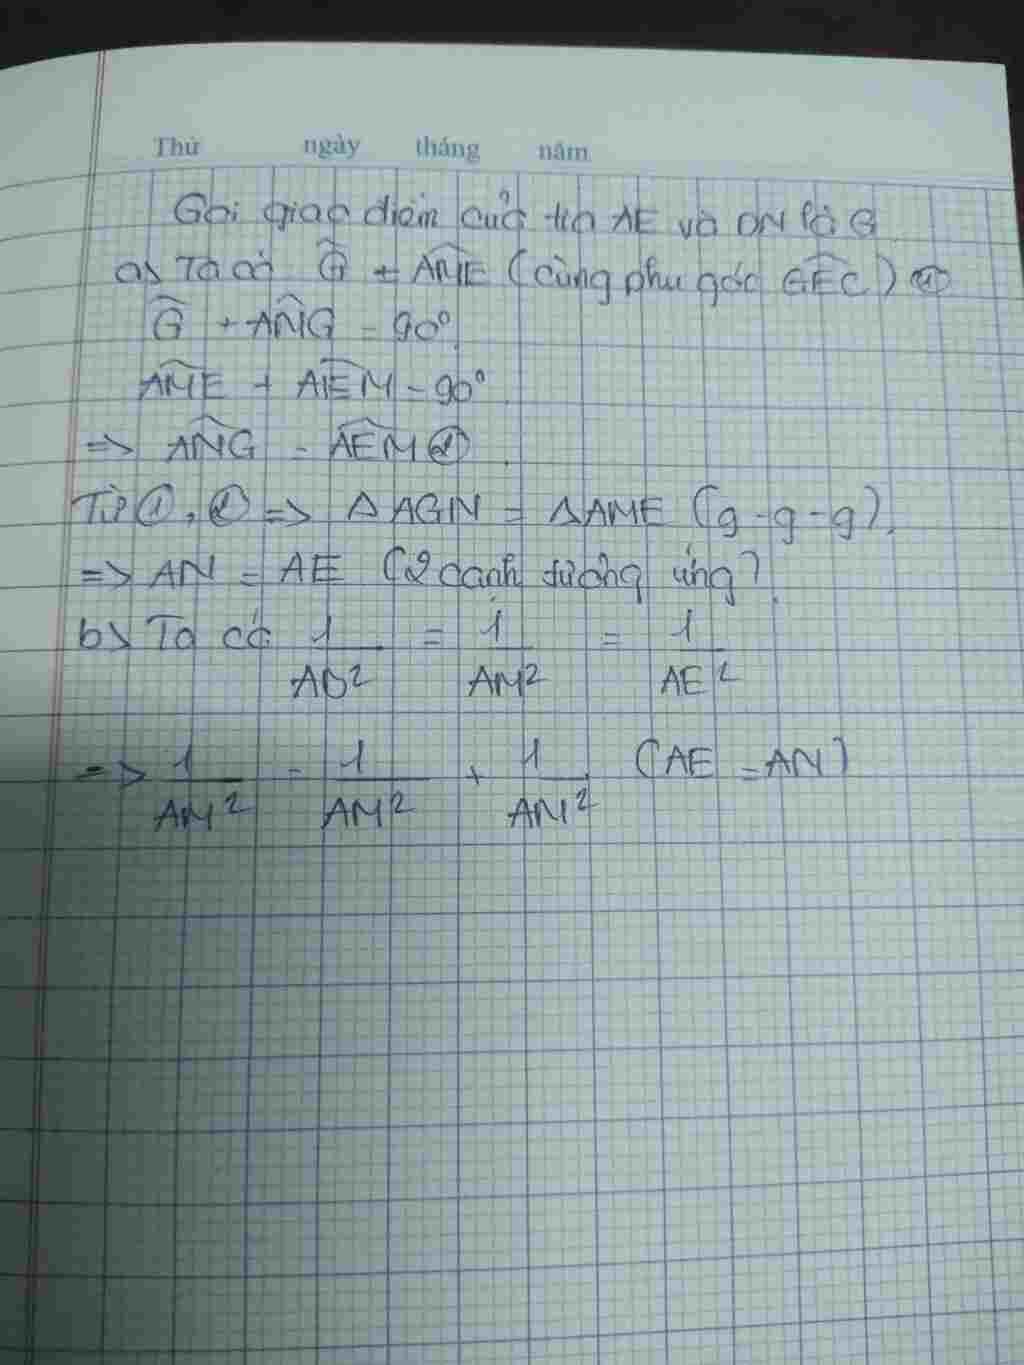 Thứ ngày tháng năm
Gọi giao điểm của tia AE và DN là G
a> Ta có Ĝ = AME (cùng phụ góc GEC) ①
Ĝ + ANG = 90°
AME + AEM = 90°
=> ANG = AEM ②
Từ ①, ② => Δ AGN = Δ AME (g-g-g).
=> AN = AE (2 cạnh tương ứng)
b> Ta có 1/AD² = 1/AM² = 1/AE²
=> 1/AM² = 1/AM² + 1/AN² (AE = AN)